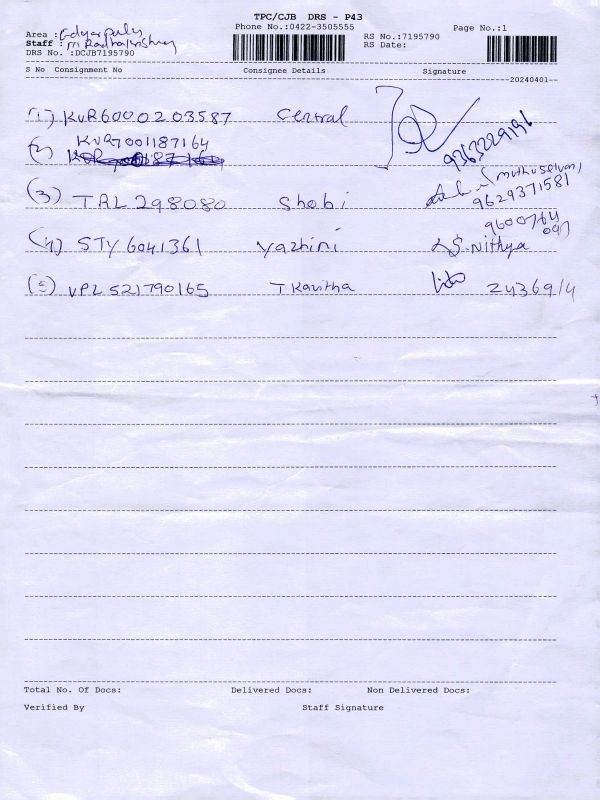 TPC/CJB DRS - P43
Phone No.:0422-3505555
Page No.:1
Area :
Staff :
DRS No. :DCJB7195790
RS No.:7195790
RS Date:
S No Consignment No Consignee Details Signature
20240401
(1) KVR6000203587 Central 9363229196
(2) KVR7001187164
(3) TRL 298080 Shobi (muthuselvan)
9629371581
(4) STY 6041361 Yazhini S. Nithya 9600764
047
(5) VPL 521790165 T Kavitha 24369/4
Total No. Of Docs: Delivered Docs: Non Delivered Docs:
Verified By Staff Signature